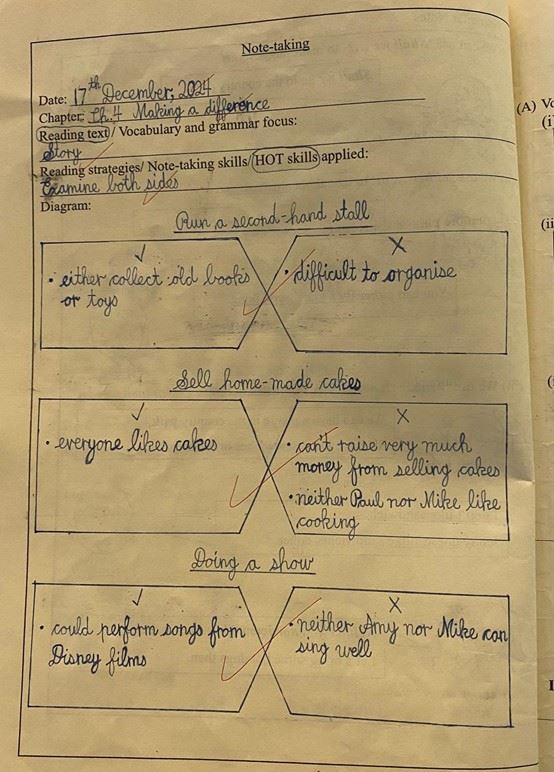 Note-taking
Date: 17th December, 2024
Chapter: Ch.4 Making a difference
Reading text/ Vocabulary and grammar focus:
Story
Reading strategies/ Note-taking skills/ HOT skills applied:
Examine both sides
Diagram:
Run a second-hand stall
✓
• either collect old books
or toys
X
• difficult to organise
Sell home-made cakes
✓
• everyone likes cakes
X
• can't raise very much
money from selling cakes
• neither Paul nor Mike like
cooking
Doing a show
✓
• could perform songs from
Disney films
X
• neither Amy nor Mike can
sing well
(A) Vo
(i)
(ii